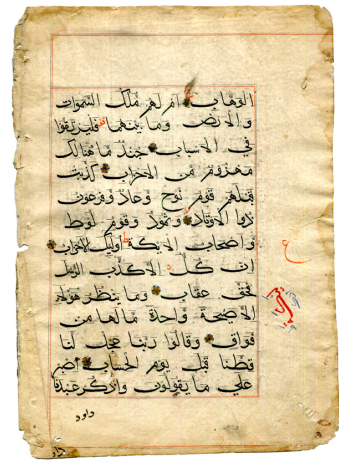 الوهاب ام لهم ملك السموات
والارض وما بينهما فليرتقوا
في الاسباب جند ما هنالك
مهزوم من الاحزاب كذبت
قبلهم قوم نوح وعاد وفرعون
ذوا الاوتاد وثمود وقوم لوط
واصحاب الايكة اوليك الاحزاب
ان كل الا كذب الرسل
فحق عقاب وما ينظر هولاء
الا صيحة واحدة ما لها من
فواق وقالوا ربنا عجل لنا
قطنا قبل يوم الحساب اصبر
علي ما يقولون واذكر عبدنا
داود
ع